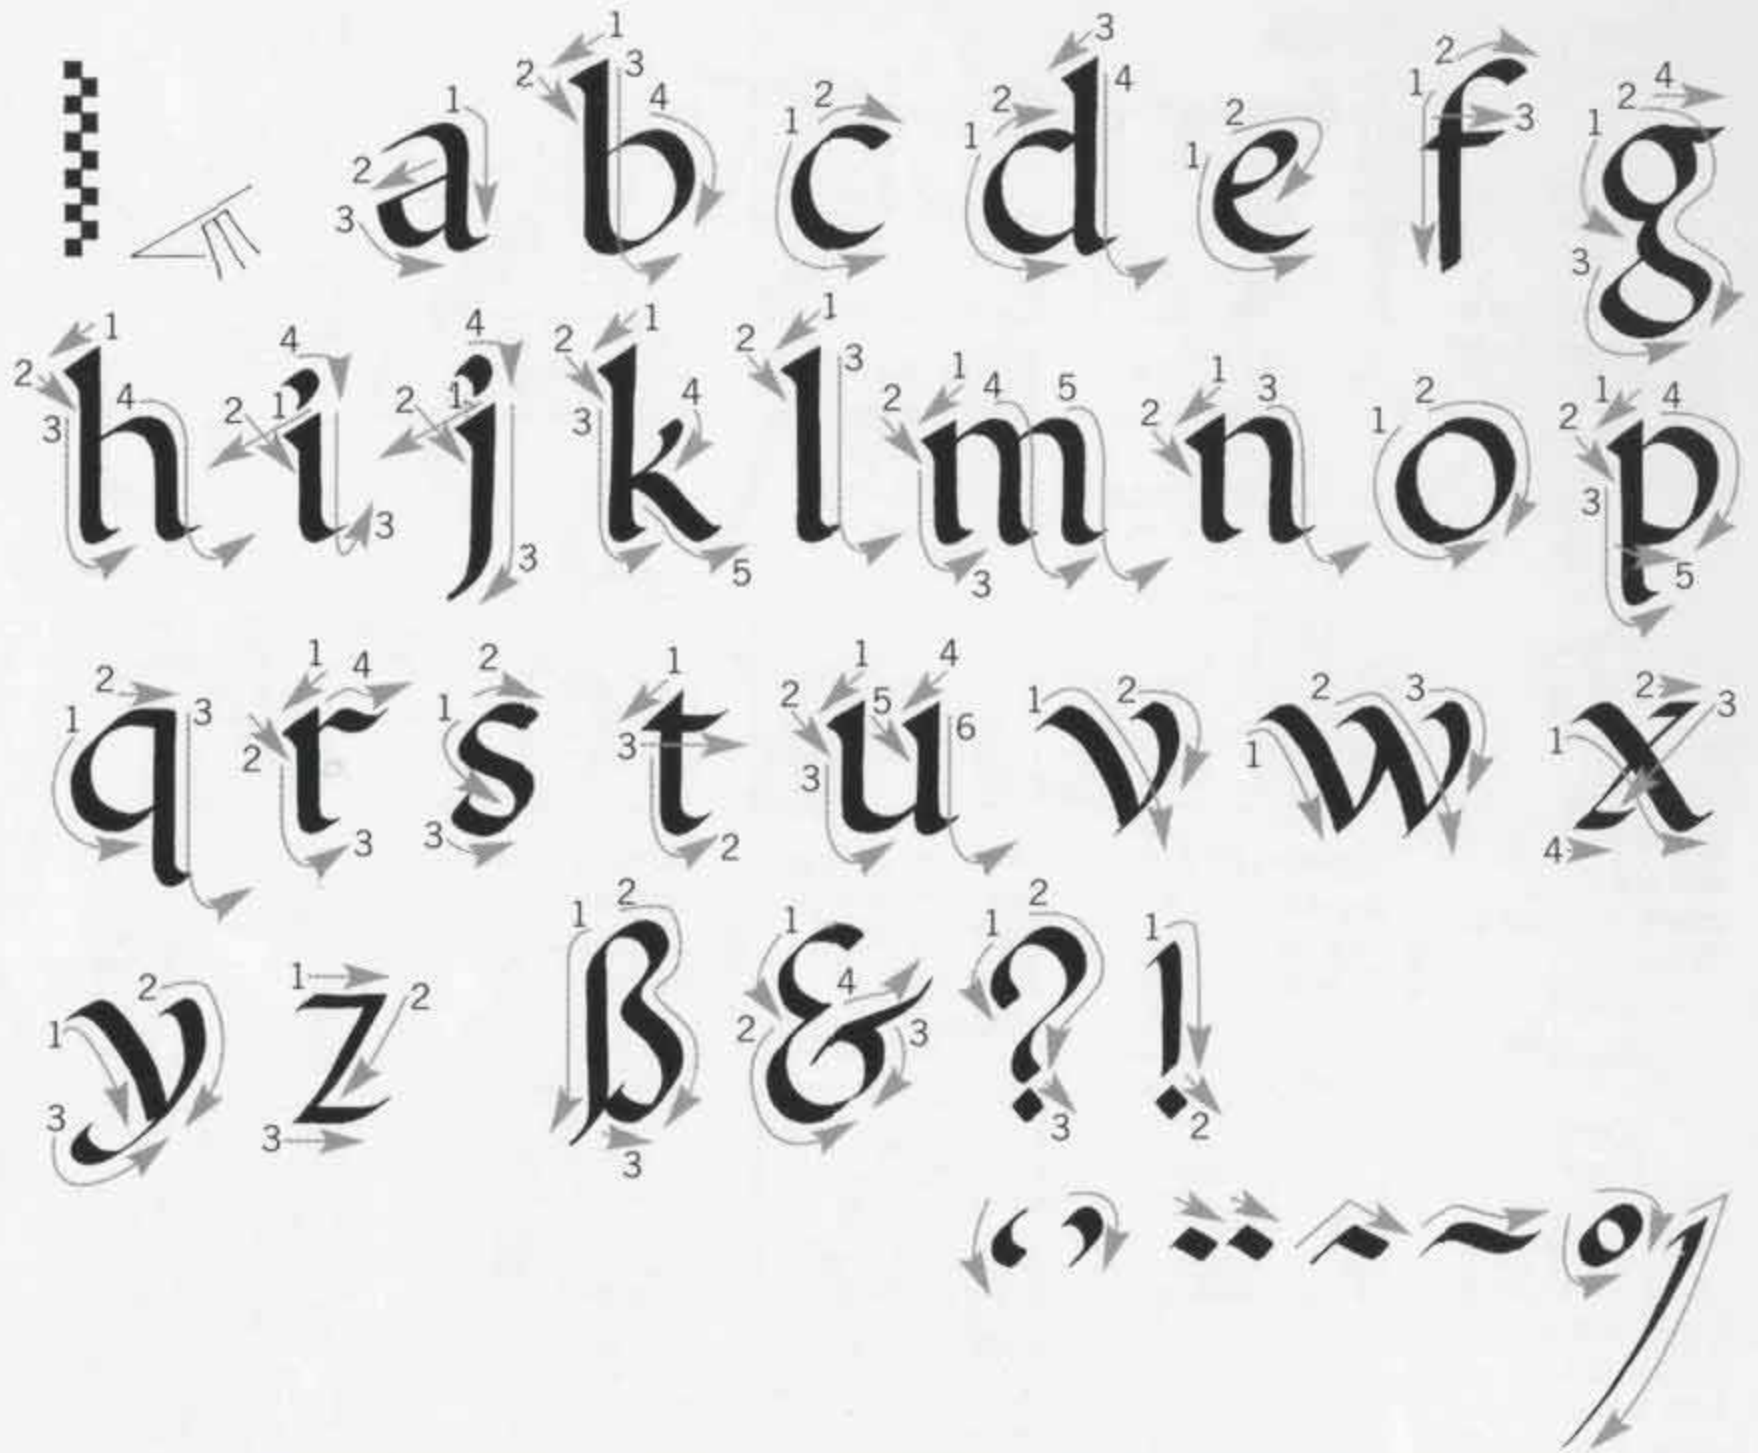 a b c d e f g
h i j k l m n o p
q r s t u v w x
y z ß & ? !
‘ ’ ¨ ^ ~ °